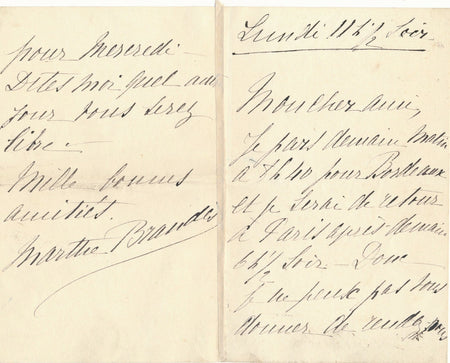 Lundi 11 h ½ Soir
Mon cher ami,
Je pars demain Matin
à 7h40 pour Bordeaux
et je serai de retour
à Paris après demain
6h½ Soir — Donc
je ne peux pas vous
donner de rendez vous
pour Mercredi —
Dites moi quel autre
jour vous serez
libre. —
Mille bonnes
amitiés.
Marthe Brandès